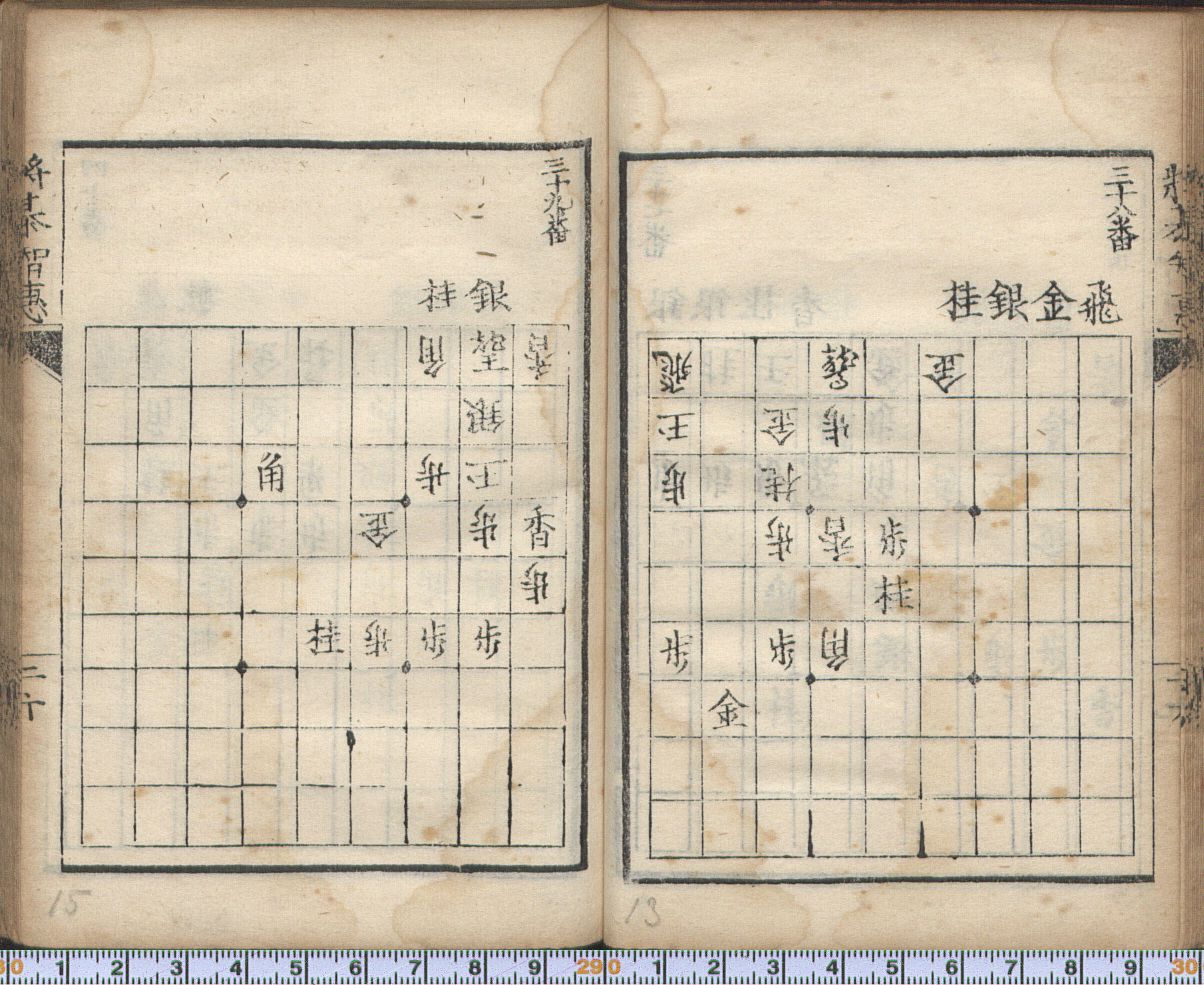 三十八番
飛金銀桂
金 飛
歩 金 王
桂 歩
歩 香 歩
桂
角 歩 歩
金
13
三十九番
銀桂
香 角
銀
王 歩 角
香 歩 金
歩
歩 歩 歩 桂
將棊智惠
15
30 1 2 3 4 5 6 7 8 9 29
0 1 2 3 4 5 6 7 8 9 30